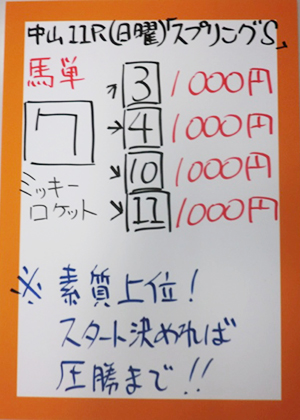 中山11R(日曜)「スプリングS」
馬単
7
→3 1000円
→4 1000円
→10 1000円
→11 1000円
ミッキー
ロケット
※素質上位!
スタート決めれば
圧勝まで!!